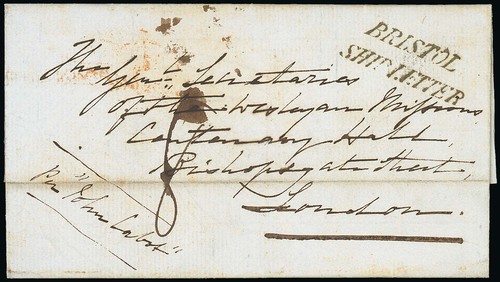 BRISTOL
SHIP LETTER
The Genl. Secretaries
of the Wesleyan Missions
Centenary Hall,
Bishopsgate Street,
London.
8
per "John Cabot"